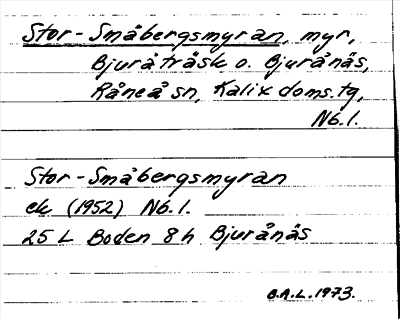 Stor-Småbergsmyran, myr,
Bjuråträsk o. Bjurånäs,
Råneå sn, Kalix doms.tg,
Nb.l.
Stor-Småbergsmyran
ek (1952) Nb.l.
25 L Boden 8h Bjurånäs
B.A.L. 1973.